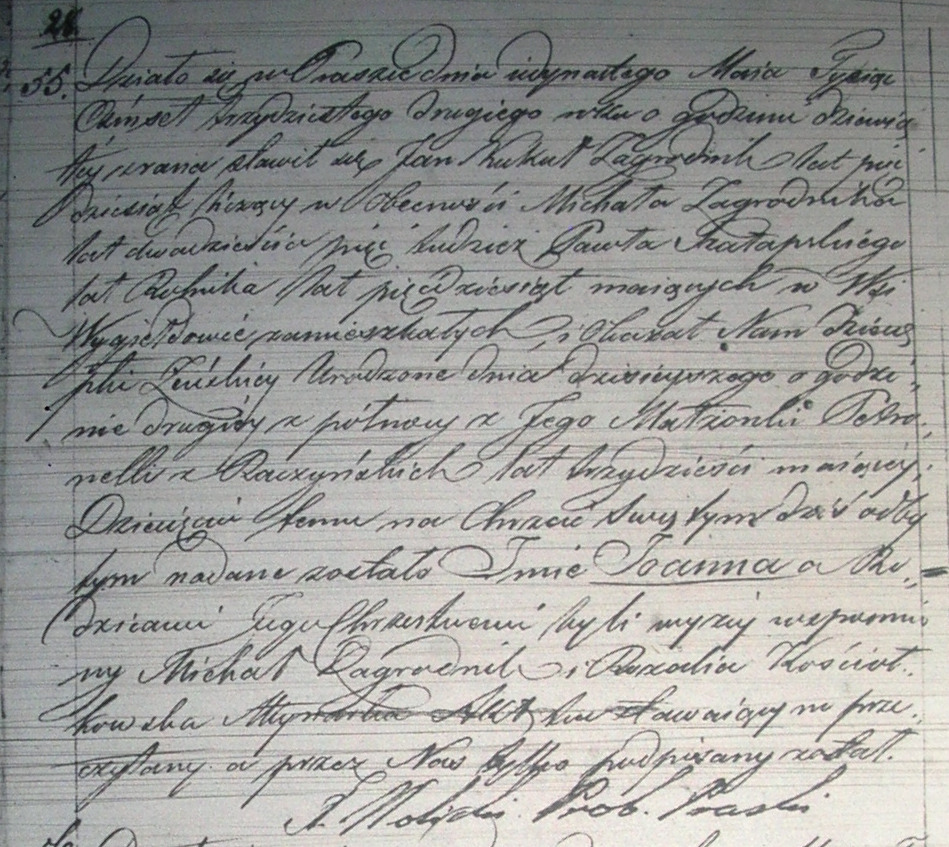 28
55. Działo się w Praszce dnia iedynastego Maia Tysiąc
Ośmset trzydziestego drugiego roku o godzinie dziewią
téy zrana stawił się Jan Kukuł Zagrodnik lat pięć
dziesiąt liczący w Obecności Michała Zagrodnika
lat dwadzieścia pięć tudzież Pawła
lat Rolnika lat pięćdziesiąt maiących w Wsi
zamieszkałych, i Okazał Nam dziecię
płci Żeńskiéy Urodzone dnia dzisieyszego o godzi
nie drugiéy z północy z Jego Małżonki Petro
nelli z Raczyńskich lat trzydzieści maiącéy.
Dziecięciu temu na Chrzcie Swiętym dziś odby
tym nadane zostało Imie Joanna a Ro
dzicami Jego Chrzestnemi byli wyżéy wspomnio
ny Michał Zagrodnik i Rozalia Kościoł
kowska Młynarka Akt ten stawaiącym prze
czytany a przez Nas tylko podpisany został.
Prob. Praszki